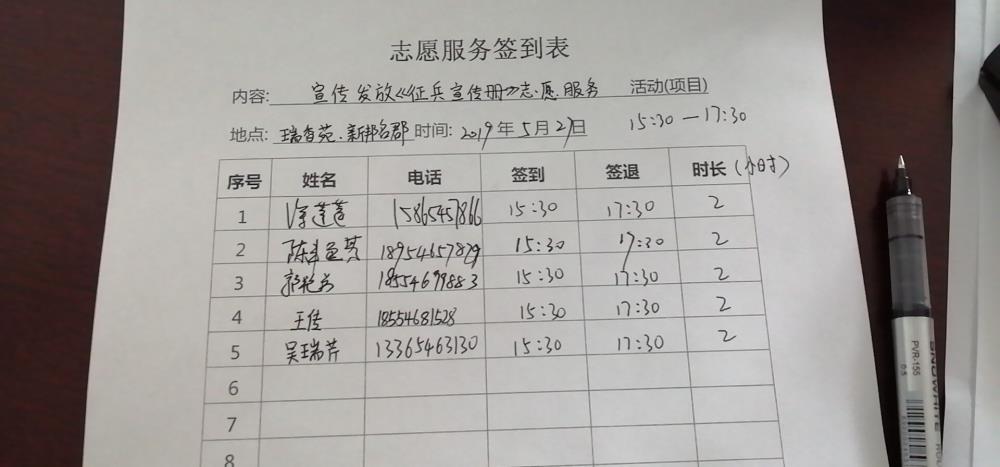 志愿服务签到表
内容: 宣传发放《征兵宣传册》志愿服务 活动(项目)
地点: 瑞香苑.新邦名郡 时间: 2019年5月27日 15:30—17:30
序号 姓名 电话 签到 签退 时长(小时)
1 徐莲莲 15865457866 15:30 17:30 2
2 陈 18954657829 15:30 17:30 2
3 18554699883 15:30 17:30 2
4 王传 18554681528 15:30 17:30 2
5 吴瑞芹 13365463130 15:30 17:30 2
6
7
8
PVR-155
0.5
SNOWHITE